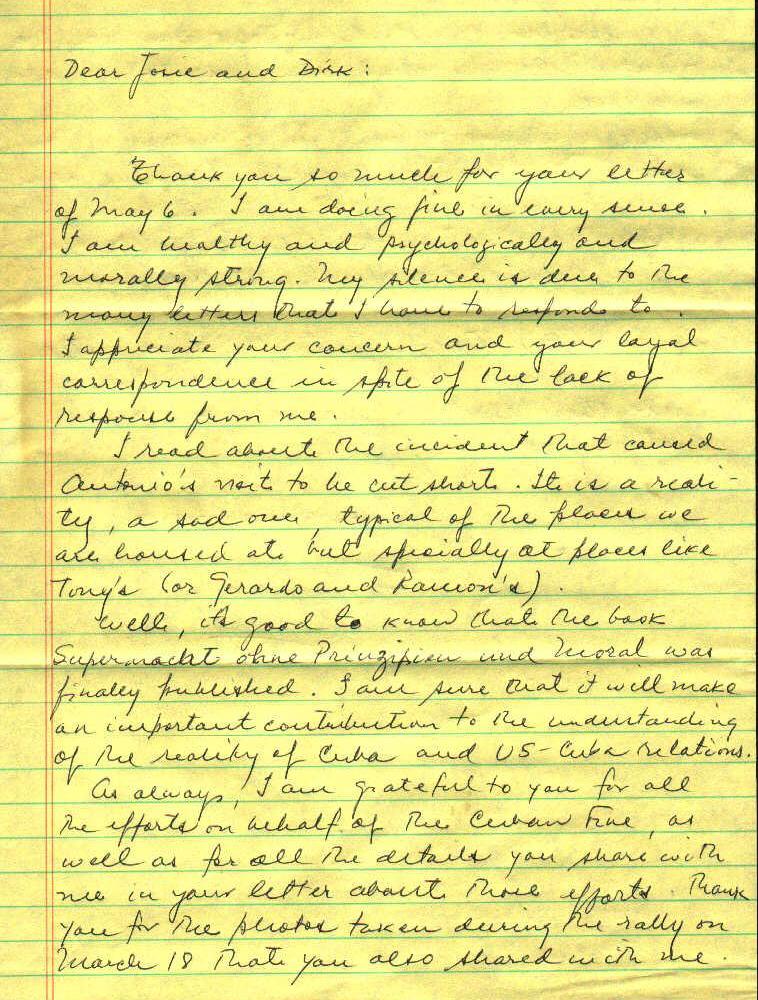 Dear Josie and Dirk:
Thank you so much for your letter
of May 6. I am doing fine in every sense.
I am healthy and psychologically and
morally strong. My silence is due to the
many letters that I have to respond to.
I appreciate your concern and your loyal
correspondence in spite of the lack of
response from me.
I read about the incident that caused
Antonio's visit to be cut short. It is a reali-
ty, a sad one, typical of the places we
are housed at but specially at places like
Tony's (or Gerardo and Ramon's).
Well, it's good to know that the book
Supermacht ohne Prinzipien und Moral was
finally published. I am sure that it will make
an important contribution to the understanding
of the reality of Cuba and US-Cuba relations.
As always, I am grateful to you for all
the efforts on behalf of the Cuban Five, as
well as for all the details you share with
me in your letter about those efforts. Thank
you for the photos taken during the rally on
March 18 that you also shared with me.